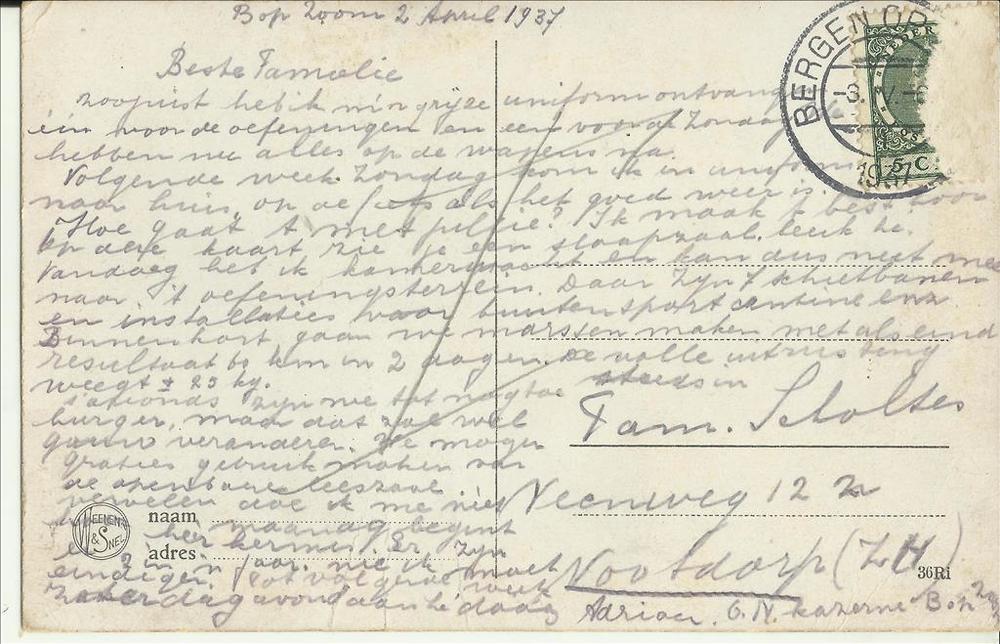 B op Zoom 2 April 1937
Beste Familie
zoojuist heb ik m'n grijze uniform ontvangen
één voor de oefeningen en een voor de Zondag
hebben nu alles op de wapens na.
Volgende week Zondag kom ik in uniform
naar huis, op de fiets als het goed weer is. hoor
Hoe gaat 't met Ik maak 't best, hoor
Op deze kaart zie je een slaapzaal. leuk he.
Vandaag heb ik kamerwacht en kan dus niet mee
naar 't oefeningsterrein. Daar zijn 7 schietbanen
en installaties voor buitensport cantine enz
Binnenkort gaan we marsen maken met als eind
resultaat 60 km in 2 dagen. De volle uitrusting
weegt ± 25 kg. steeds in
s'avonds zijn we tot nog toe
burger, maar dat zal wel
gauw veranderen. We mogen
gratis gebruik maken van
de openbare leeszaal
vervelen doe ik me niet
maandag begint
hier kermis. Er zijn
2 in 'n jaar. nu ik moet
eindigen. Tot volgende week
zaterdagavond aan de
Fam. Scholtes
Veenweg 122
Nootdorp (ZH)
Adriaan. C.N. kazerne Bop
BERGEN OP
-3. IV
1937
NEDER
5 C
WEENENK & SNEL
naam
adres
36Ri